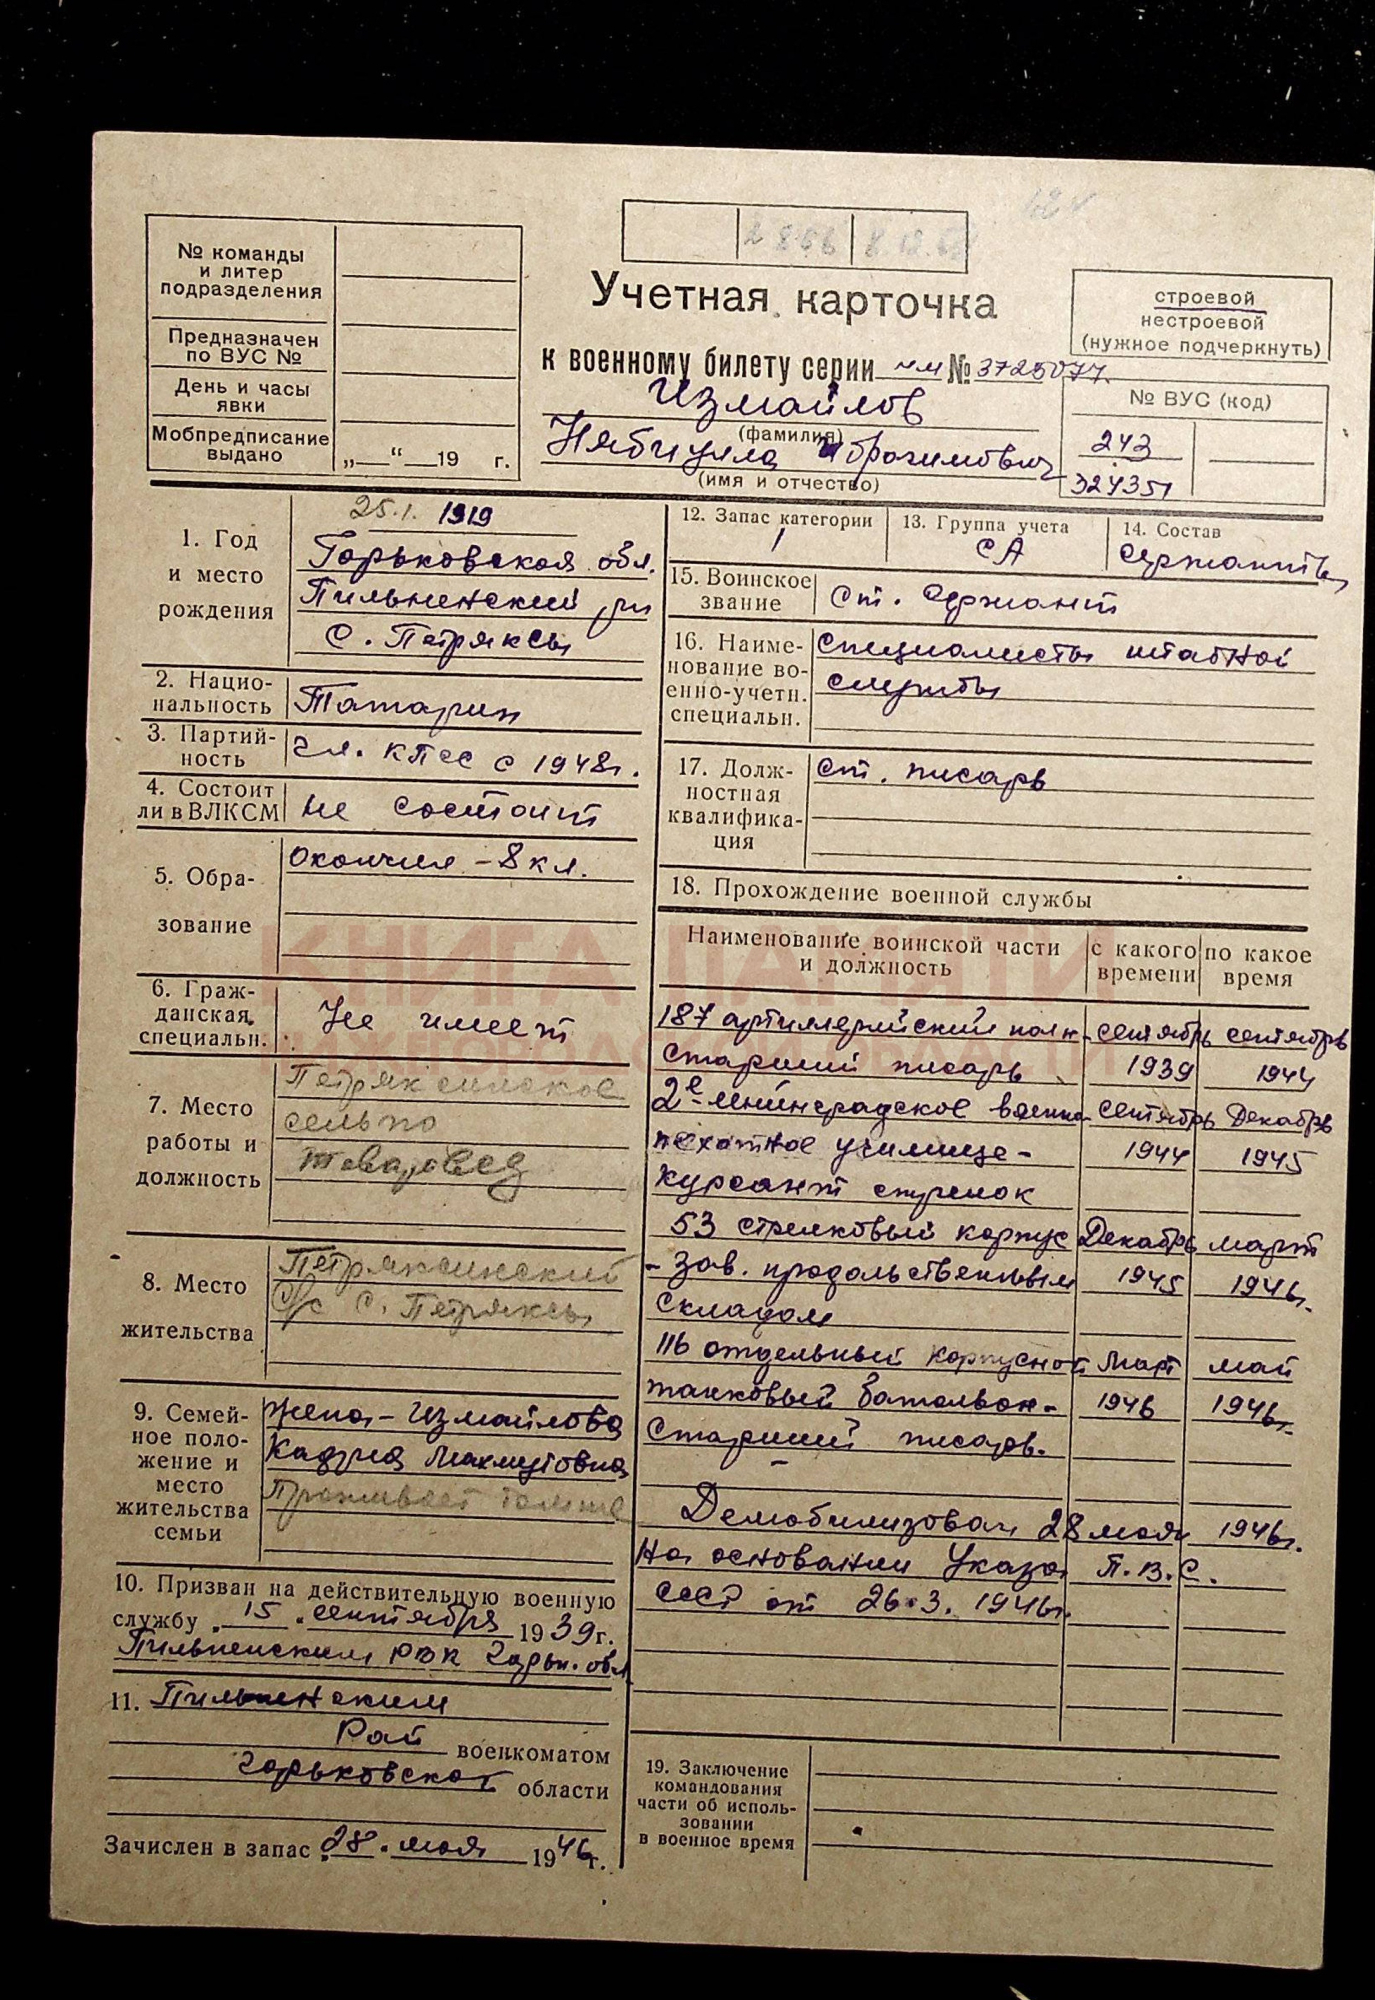 № команды
и литер
подразделения
Предназначен
по ВУС №
День и часы
явки
Мобпредписание
выдано
„__“ __19 г.
Учетная карточка
к военному билету серии нм № 3725077.
Измайлов
(фамилия)
Нябиулла Ибрагимович
(имя и отчество)
строевой
нестроевой
(нужное подчеркнуть)
№ ВУС (код)
243
324351
1. Год
и место
рождения
25.1. 1919
Горьковская обл.
Пильненский рн
с. Петряксы
2. Нацио-
нальность
Татарин
3. Партий-
ность
чл. КПСС с 1948г.
4. Состоит
ли в ВЛКСМ
не состоит
5. Обра-
зование
окончил - 8 кл.
6. Граж-
данская
специальн.
Не имеет
7. Место
работы и
должность
Петряксинское
сельпо
товаровед
8. Место
жительства
Петряксинский
с/с с. Петряксы
9. Семей-
ное поло-
жение и
место
жительства
семьи
жена - Измайлова
Кадрия Махмутовна
Проживает там же
10. Призван на действительную военную
службу „15 сентября 1939г.
Пильненским РВК Горьк. обл
11. Пильненским
Рай военкоматом
Горьковской области
Зачислен в запас 28. мая 1946г.
12. Запас категории
1
13. Группа учета
СА
14. Состав
сержанты
15. Воинское
звание
ст. сержант
16. Наиме-
нование во-
енно-учетн.
специальн.
специалисты штабной
службы
17. Долж-
ностная
квалифика-
ция
ст. писарь
18. Прохождение военной службы
Наименование воинской части
и должность
с какого
времени
по какое
время
187 артиллерийский полк- сентябрь сентябрь
старший писарь 1939 1944
2е Ленинградское военно- сентябрь Декабрь
пехотное училище- 1944 1945
курсант стрелок
53 стрелковый корпус Декабрь март
- зав. продольственным 1945 1946г.
складом
116 отдельный корпусной март май
танковый батальон- 1946 1946г.
старший писарь.
Демобилизован 28 мая 1946г.
На основании Указа П.В.С.
СССР от 26.3.1946г.
19. Заключение
командования
части об исполь-
зовании
в военное время
КНИГА ПАМЯТИ
НИЖЕГОРОДСКОЙ ОБЛАСТИ